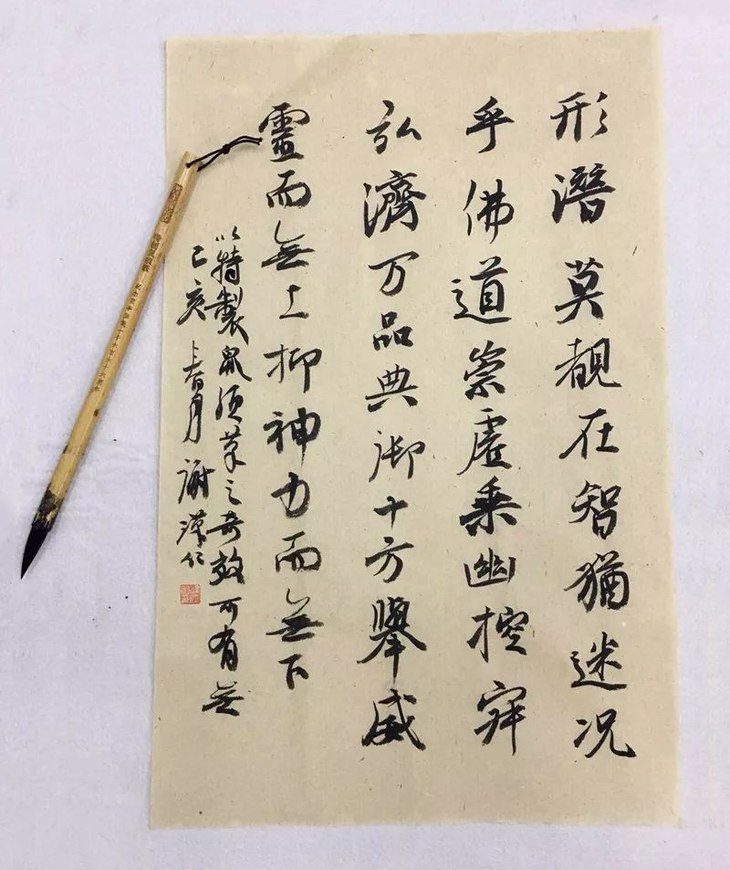 形潛莫覩在智猶迷况
乎佛道崇虛乘幽控寂
弘濟万品典御十方舉威
靈而無上抑神力而無下
以特製鼠須筆之奇效可有無
己亥春月謝漢仁